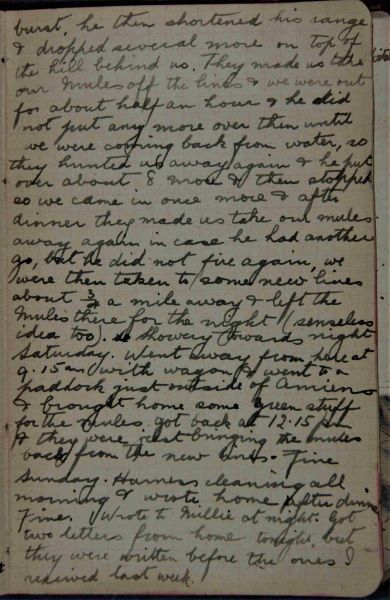 burst, he then shortened his range
& dropped several more on top of
the hill behind us. They made us take
our mules off the lines & we were out
for about half an hour & he did
not put any more over then until
we were coming back from water, so
they hunted us away again & he put
over about 8 more & then stopped
so we came in once more & after
dinner they made us take our mules
away again in case he had another
go, but he did not fire again, we
were then taken to some new lines
about 3/4 a mile away & left the
mules there for the night (senseless
idea too). Showery towards night
Saturday. Went away from here at
9.15 am with wagon & went to a
paddock just outside of Amiens
& brought home some green stuff
for the mules, got back at 12.15 pm
& they were just bringing the mules
back from the new lines. Fine
Sunday. Harness cleaning all
morning & wrote home after dinner
Fine. Wrote to Millie at night. Got
two letters from home tonight, but
they were written before the ones I
received last week.